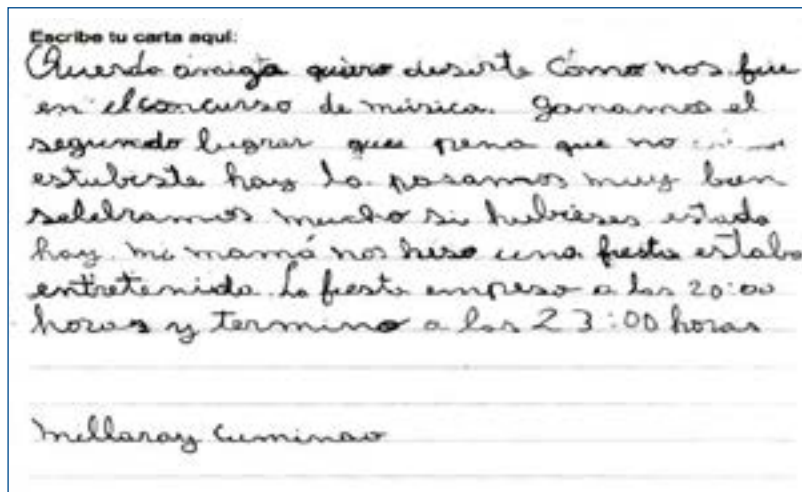 Escribe tu carta aquí:
Querda amiga quiero desirte Cómo nos fue
en el concurso de música. ganamos el
segundo lugrar que pena que no
estubiste hay lo pasamos muy bien
selebramos mucho si hubieses estado
hay. mi mamá nos hiso una fiesta estaba
entretenida. La fiesta empeso a las 20:00
horas y termino a las 23:00 horas
Millaray Cuminao